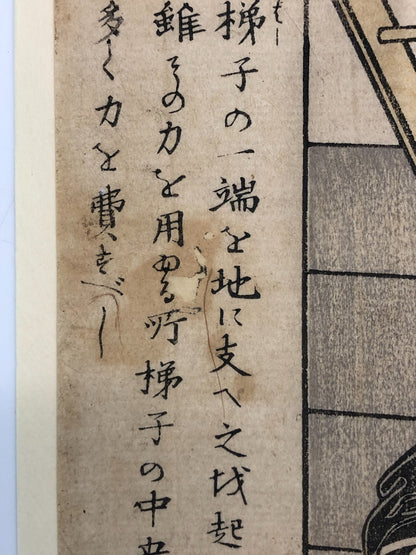 梯子の一端を地に支へ之を起
雖その力を用ゆる所梯子の中央
多く力を費すべし